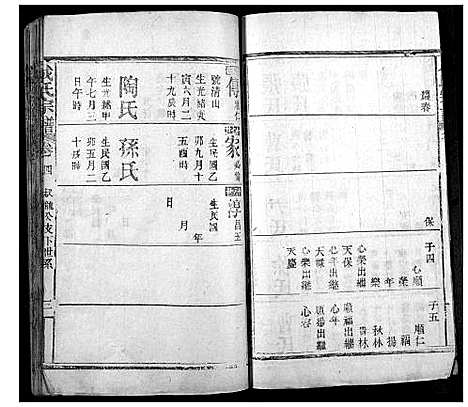 保
子四
心順
榮
年
樂
天保
心榮出繼
心年出繼
天祿
心樂出繼
天慶
子五
順仁
福
揚
秋林
杏林
順福出繼
心年
順揚出繼
心容
戴氏宗譜
卷四
公支下世系
傳
號清山
生光緒庚
寅六月二
十九辰時
陶氏
生光緒甲
午七月三
日午時
家
生民國乙
卯九月十
五酉時
孫氏
生民國乙
卯五月二
十辰時
淳
生民國
年
月
日